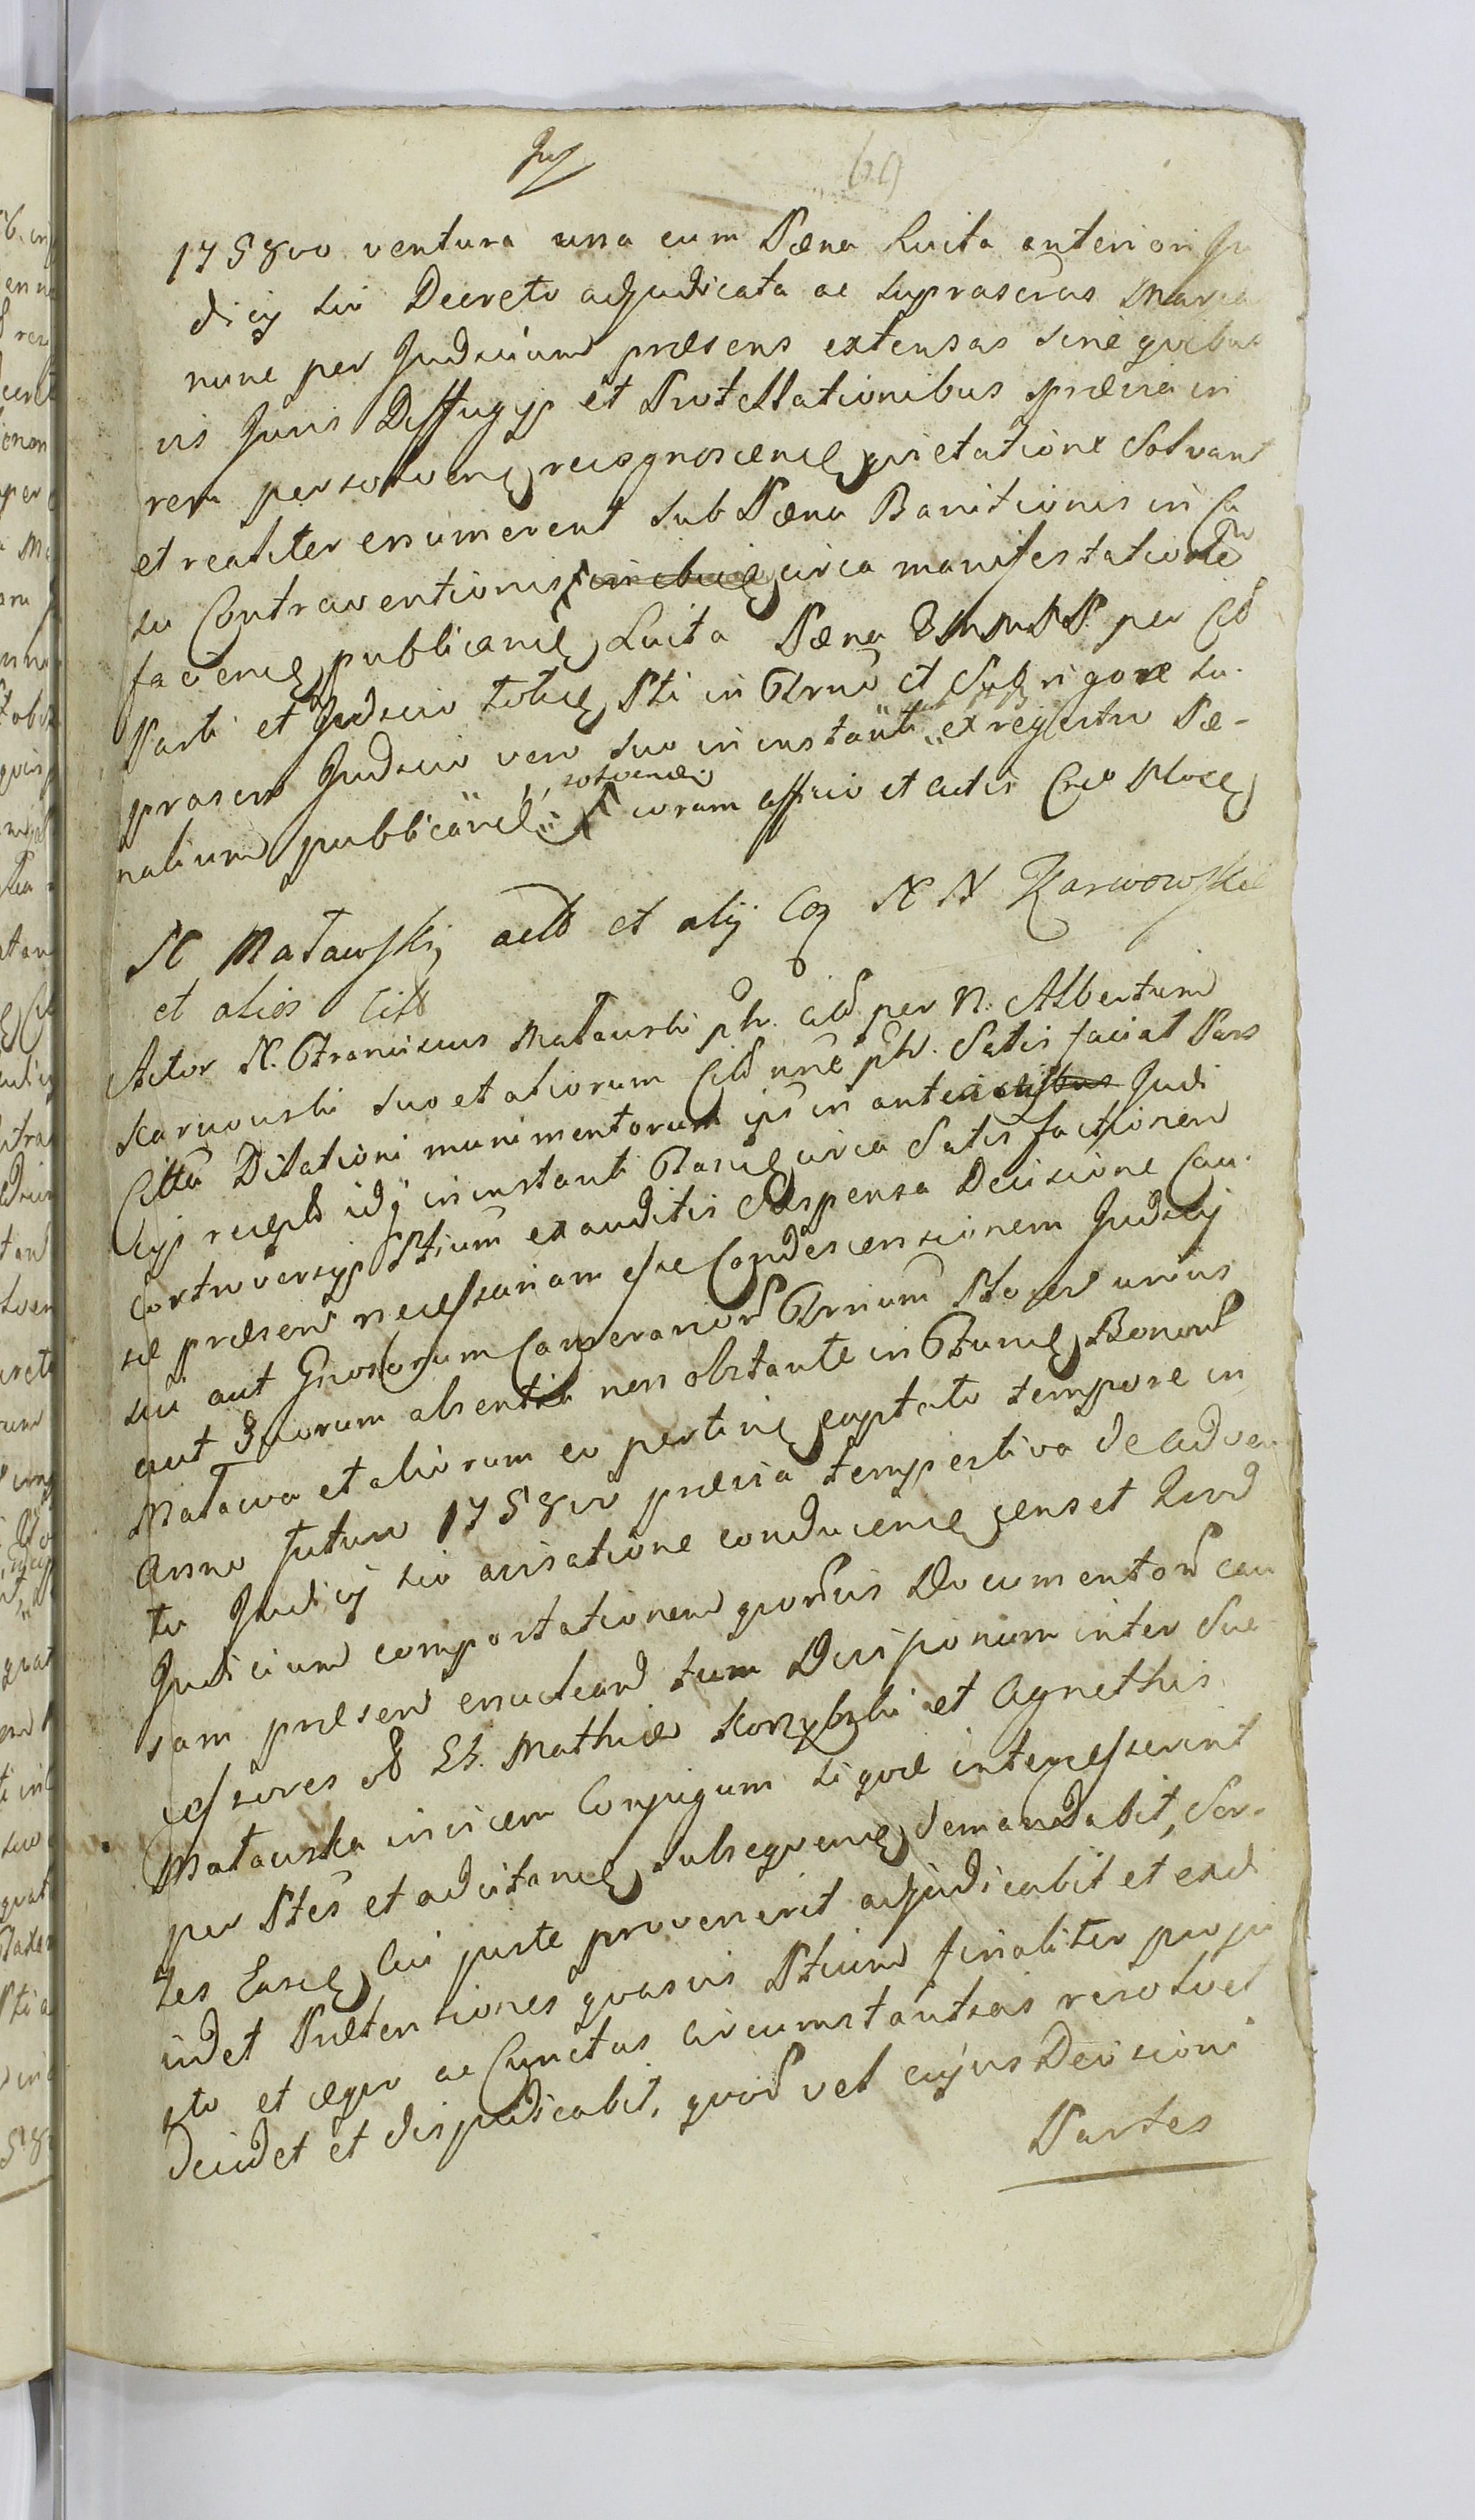 69
1758vo ventura una cum Pæna Luita anteriori Ju
dicij sui Decreto adjudicata ac suprascras Marcas
nunc per Judicium præsens extensas sine quibus
vis Juris Diffugijs et Protestationibus prævia in
rem persolvend recognoscend quietatione Solvant
et realiter enumerent sub Pæna Banitionis in Ca
su Contraventionis circa manifestationem
faciend publicand Luita Pæna per Cit
Parti et Judicio totid Pti in Trno et Sub rigore su
prascro Judicio vero suo in instanti ex regestro Pæ-
nalium publicand solvend coram officio et actis
N Matawski actor et alij Co N N Karwowski
et alios Citt
Actor N. Franciscus Matawski pth. Cit per N. Albertum
Karwowski suo et aliorum Cit nne pth. Satis faciat Pars
Citta Dilationi munimentorum ips in anteriori Judi
cijs recept idq in instanti circa Satis factionem
controversijs Ptium exauditis Suspensa Decisione Cau
sæ præsens necessariam esse Condescensionem Judicij
sui aut Gnosorum Camerariorum Trnium unius
aut Duorum absentia non obstante in Fund Bonorum
Matawa et aliorum eo pertin captato tempore in
Anno futuro 1758vo prævia tempestiva de adven
tu Judicij sui avisatione conducend censet Quod
Judicium comportationem quorumvis Documentorum cau
sam præsen enucleand tum Divisionum inter Suc
cessores ol Gs. Mathiæ et Agnethis
Matawska invicem Conjugum si quæ intercesserint
per Ptes et adcitand subsequend demandabit, Sor-
tes Easd Cui juste provenerit adjudicabit et exdi
videt Prætensiones quasvis Ptium finaliter pro ju
sto et æquo ac Cunctas circumstantias resolvet
decidet et disjudicabit, quod vel cujus Decisioni
Partes